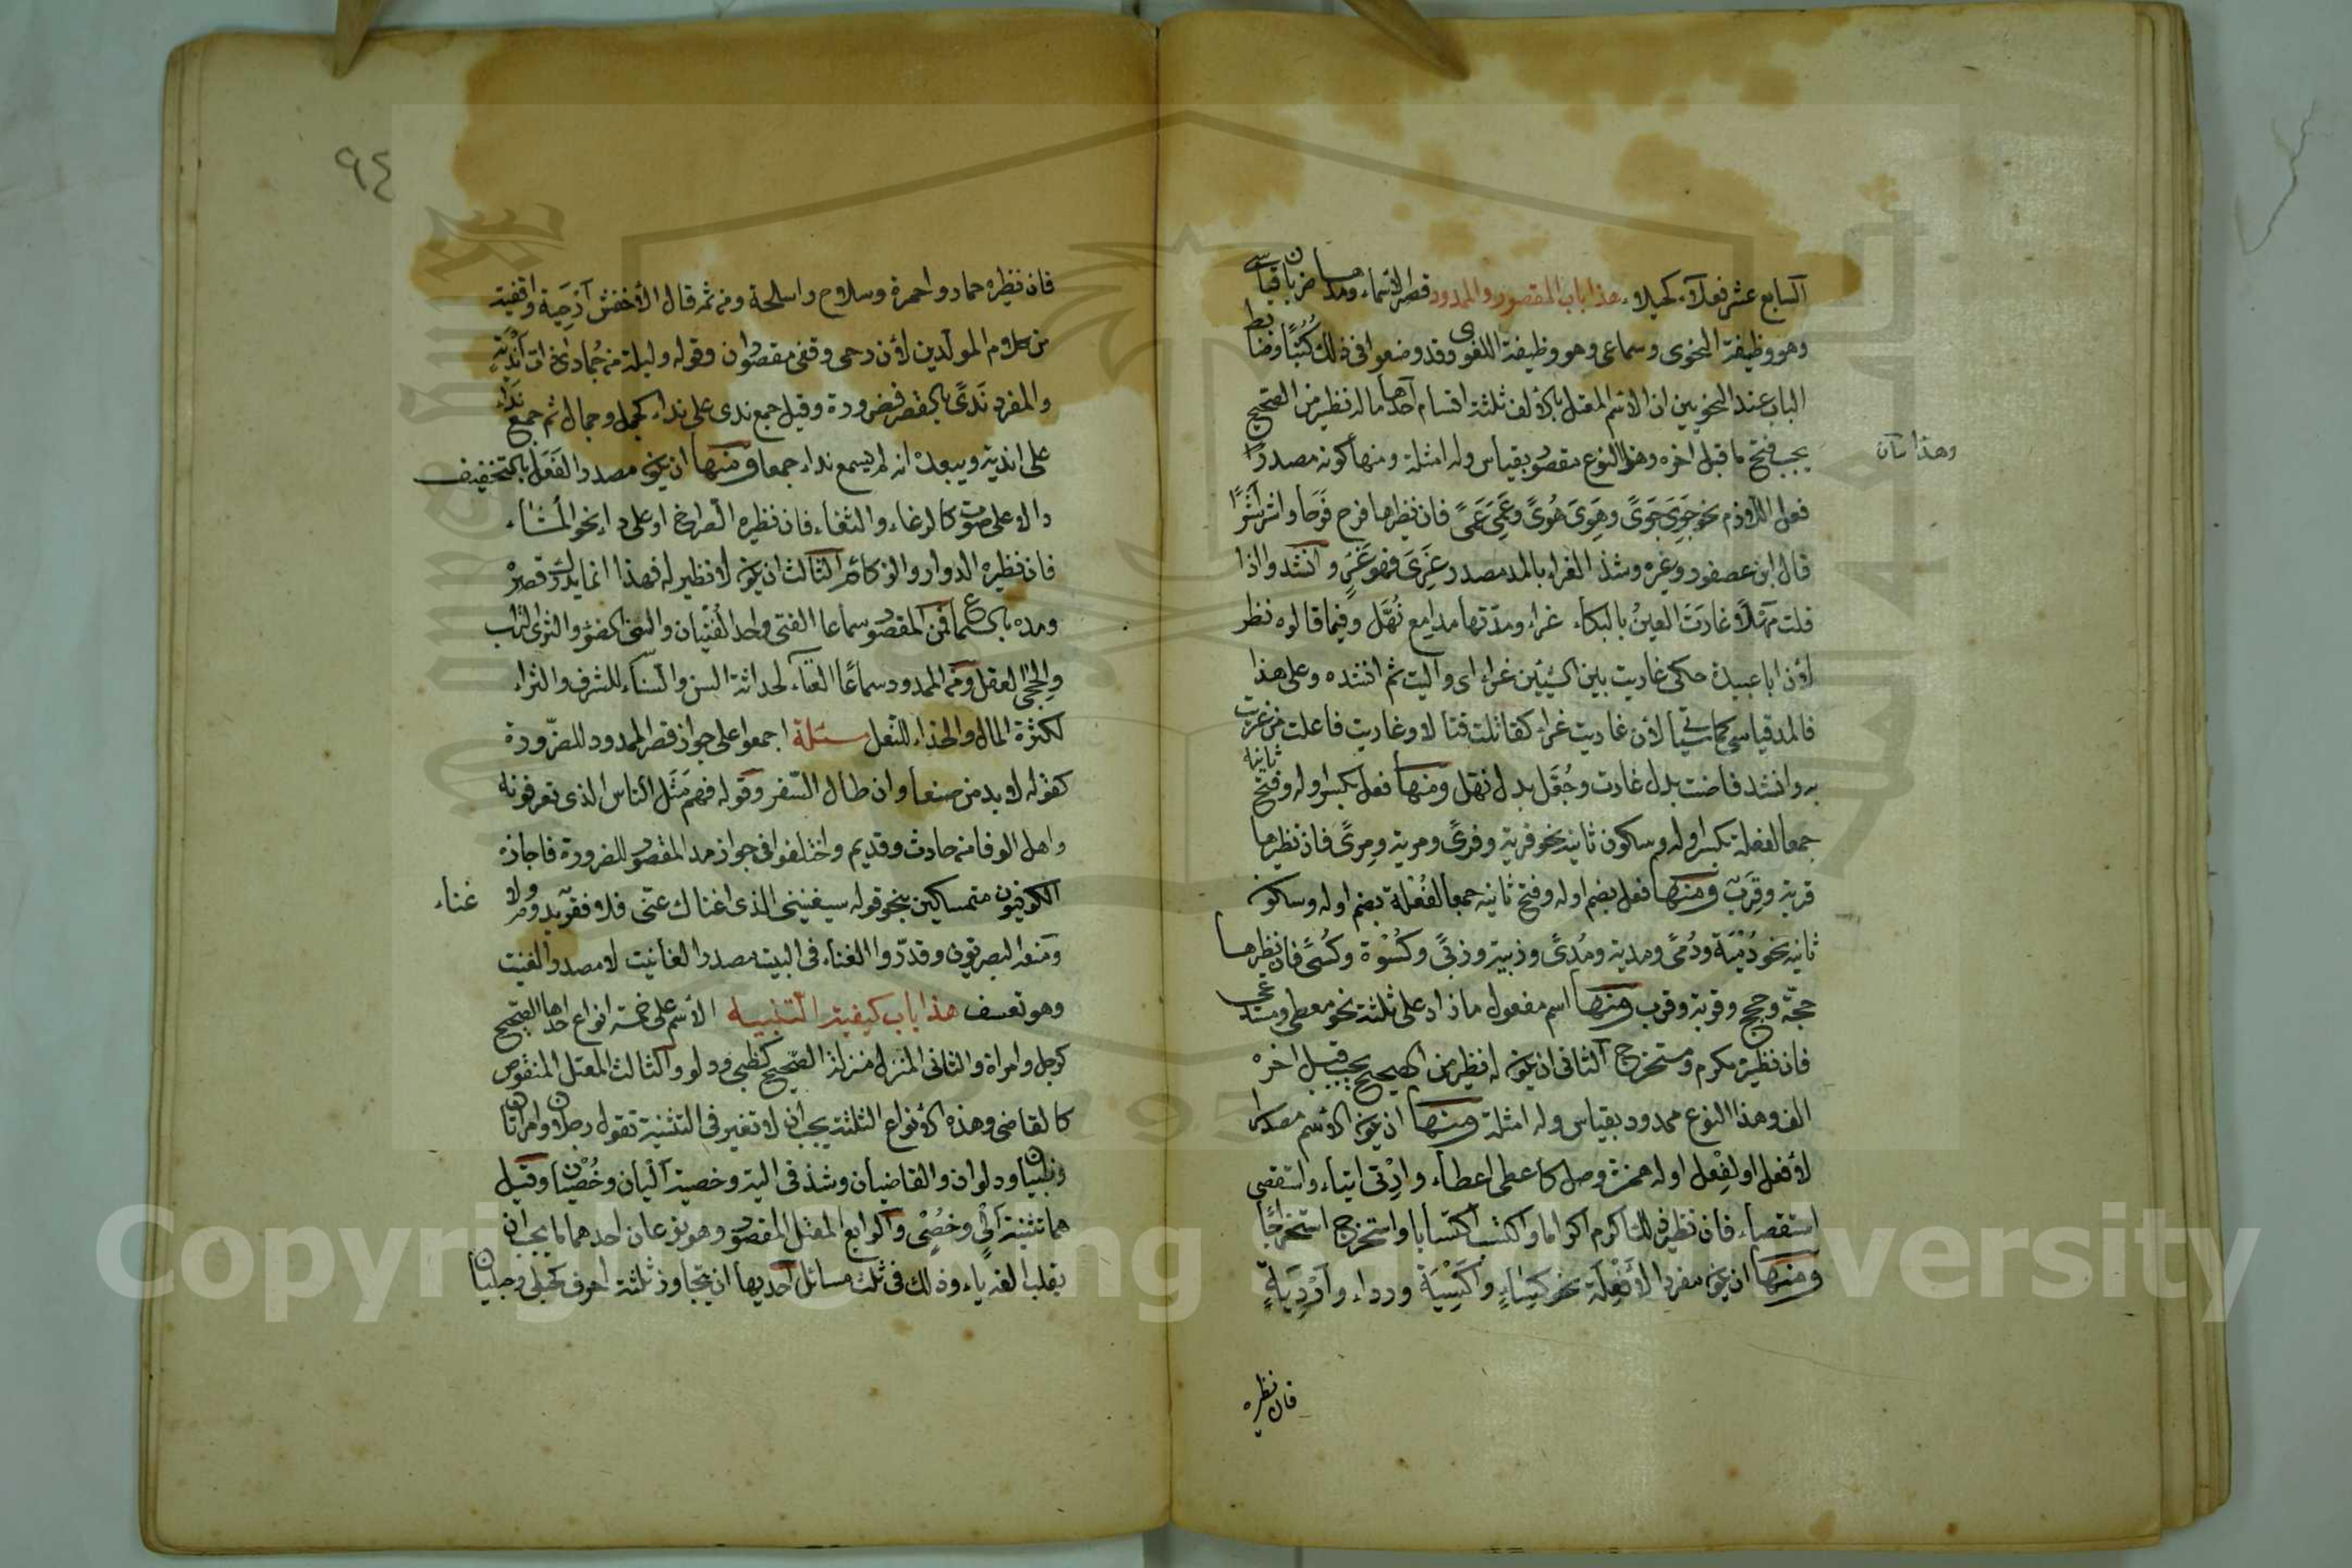 السابع عشر فعلاء كخيلاء هذا باب المقصور والممدود قصر الاسماء ومدها ضربان قياسي
وهو وظيفة النحوي وسماعي وهو وظيفة اللغوي وقد وضعوا في ذلك كُتُبًا وضابط
الباب عند النحويين ان الاسم المعتل بالالف ثلثة اقسام احدها ما له نظير من الصحيح
يجب فتح ما قبل اخره وهذا النوع مقصور بقياس وله امثلة ومنها كونه مصدرا
وهذا بيان
لفعل اللازم نحو جَوِيَ جَوًى وهَوِيَ هَوًى وعَمِيَ عَمًى فان نظيرها فرح فَرَحًا واشر أَشَرًا
قال ابن عصفور وغيره وشذ الغراء بالمد مصدر غَرِيَ فهو غَرٍ وانشدوا اذا
قلت مَهْلًا غارَتَ العينُ بالبكاء غراء ومدّتها مدامع نُهَّل وفيما قالوه نظر
لأن ابا عبيدة حكى غاريت بين الشيئين غراء اى واليت ثم انشده وعلى هذا
فالمد قياسي كما سيأتي لأن غاريت غراء كقاتلت قتالا وغاريت فاعلت من غريت
به وانشد فاضت بدل غارت وحُفَّل بدل نهّل ومنها فعل بكسر اوله وفتح ثانيه
جمعا لفعلة بكسر اوله وسكون ثانيه نحو فرية وفرًى ومرية ومرًى فان نظيرها
قربة وقِرَب ومنها فعل بضم اوله وفتح ثانيه جمعا لفُعْلة بضم اوله وسكون
ثانيه نحو دُمْيَة ودُمًى ومدية ومُدًى وزبية وزبًى وكُسْوة وكُسًى فان نظيرها
حجّة وحجج وقربة وقرب ومنها اسم مفعول ما زاد على ثلثة نحو معطى ومستدعى
فان نظيره مكرم ومستخرج الثاني ان يكون له نظير من الصحيح يجب قبل اخره
الف وهذا النوع ممدود بقياس وله امثلة ومنها ان يكون الاسم مصدرا
لأفعل او لفِعْل اوله همزة وصل كاعطى اعطاء وارتأى ارتياء واستقصى
استقصاء فان نظير ذلك اكرم اكراما واكتسب اكتسابا واستخرج استخراجًا
ومنها ان يكون مفردا لأَفْعِلَة نحو كِسَاءٍ واَكْسِيَة ورداء وأرْدِيَةٍ
فان نظيره
٩٤
فان نظيره حمار واحمرة وسلاح واسلحة ومن ثم قال الأخفش أرحِيَة واقفية
من كلام المولّدين لأن رحى وقفى مقصوران وقوله وليلة من جُمادى ذات أنْدِيَةٍ
والمفرد نَدًى بالقصر فضرورة وقيل جمع ندى على نداء كجمل وجمال ثم جمع نِدَاء
على اندية ويبعده انه لم يسمع نداء جمعا ومنها ان يكون مصدرا لفَعَلَ بالتخفيف
دالا على صوت كالرغاء والثغاء فان نظيره الصراخ او على داء نحو المُشَاء
فان نظيره الدوار والزكام الثالث ان يكون لا نظير له فهذا انما يدرك قصره
ومده بالسماع فمن المقصور سماعا الفتى واحد الفتيان والسنى الضوء والثرى التراب
والحِجَى العقل ومن الممدود سماعًا الفتاء لحداثة السن والسناء للشرف والثراء
لكثرة المال والحذاء للنعل مسئلة اجمعوا على جواز قصر الممدود للضّرورة
كقوله لا بد من صنعا وان طال السّفر وقوله فهم مَثَل الناس الذي تعرفونه
واهل الوفا من حادث وقديم واختلفوا في جواز مد المقصور للضرورة فاجازه
الكوفيون متمسكين بنحو قوله سيغنيني الذي اغناك عنّي فلا فقر يدوم ولا غناء
ومنعه البصريون وقدّروا الغناء في البيت مصدرا لغانيت لا مصدرا لغنيت
وهو تعسف هذا باب كيفية التثنية الأسم على خمسة انواع احدها الصحيح
كرجل وامراة والثاني المنزل منزلة الصحيح كظبي ودلو والثالث المعتل المنقوص
كالقاضي وهذه الأنواع الثلثة يجب أن لا تغير في التثنية تقول رجلان وامراتان
وظبيان ودلوان والقاضيان وشذ في الية وخصية أليان وخُصْيان وقيل
هما تثنية ألْيٍ وخُصْيٍ والرابع المعتل المقصور وهو نوعان احدهما ما يجب ان
يقلب الفه ياء وذلك في ثلث مسائل احديها ان يتجاوز ثلثة احرف كحبلى وحبليان
Copyright © King Saud University